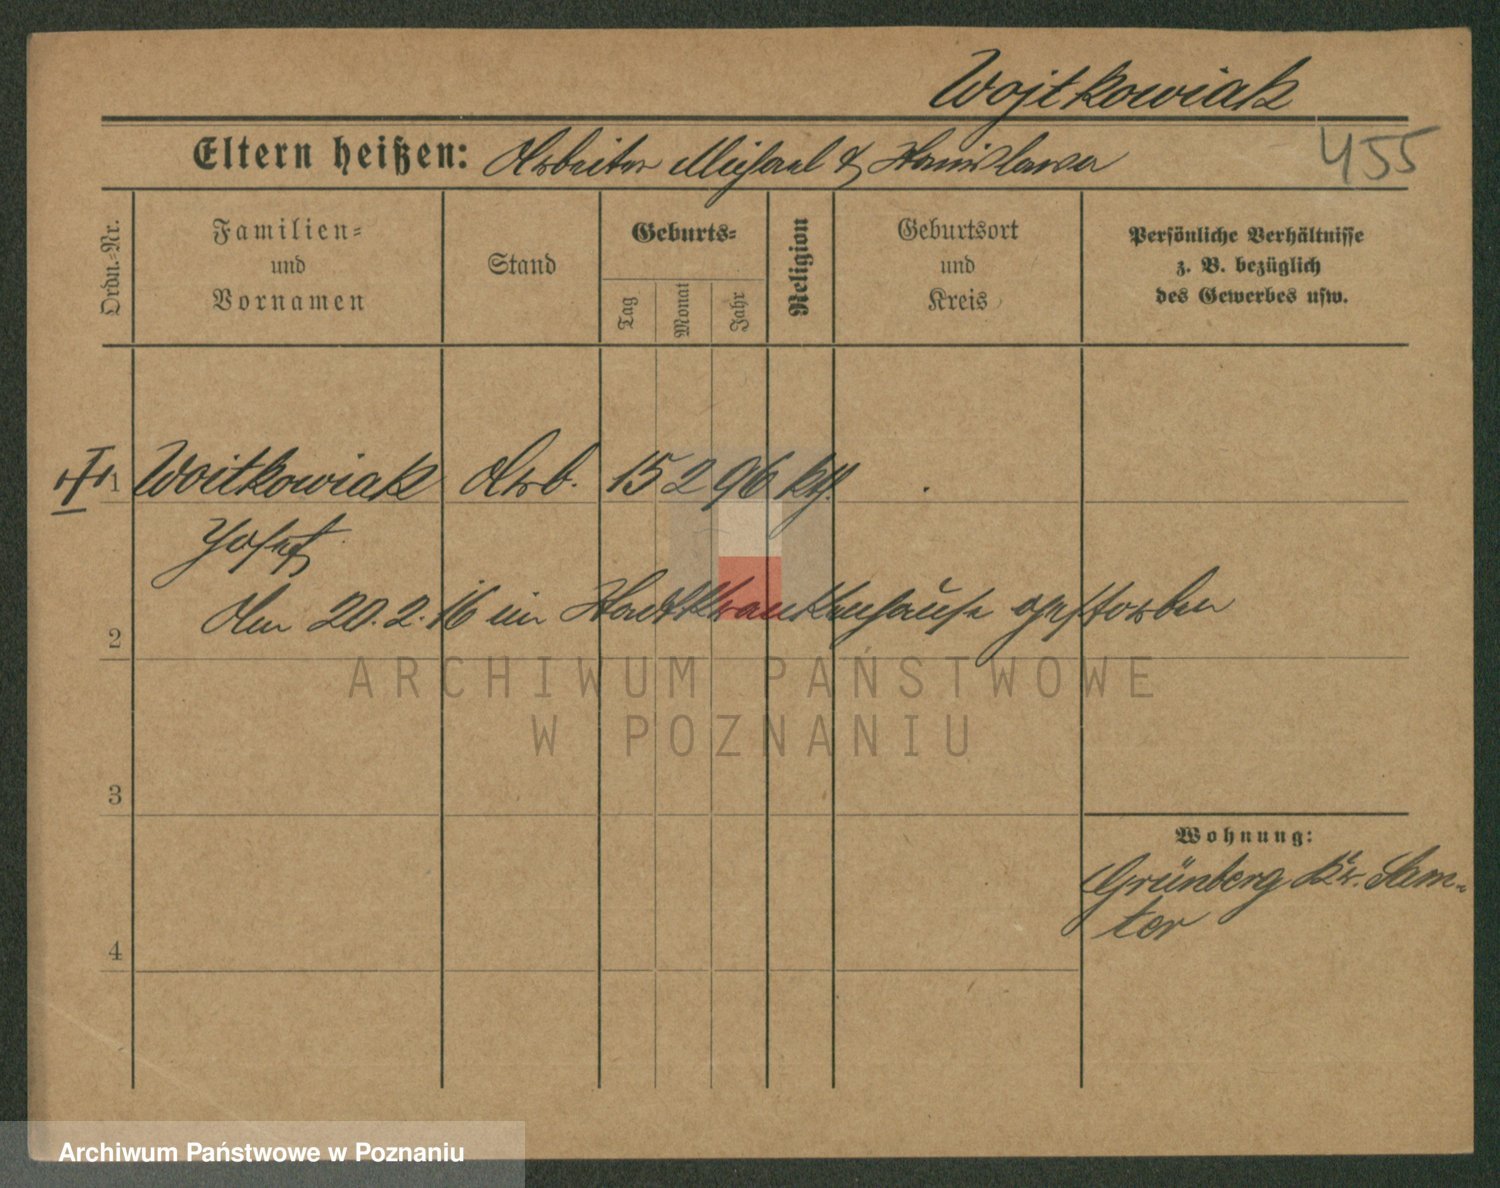 Wojtkowiak
Eltern heißen: Arbeiter Michael & Stanislawa
455
Ordn.-Nr.
Familien-
und
Vornamen
Stand
Geburts-
Tag
Monat
Jahr
Religion
Geburtsort
und
Kreis
Persönliche Verhältnisse
z. B. bezüglich
des Gewerbes usw.
1 Woitkowiak Arb. 15 2 96 kth.
Josef
Am 20.2.16 im Stadtkrankenhause gestorben
2
ARCHIWUM PAŃSTWOWE
W POZNANIU
3
Wohnung:
Grünberg Kr. Sam-
ter
4
Archiwum Państwowe w Poznaniu